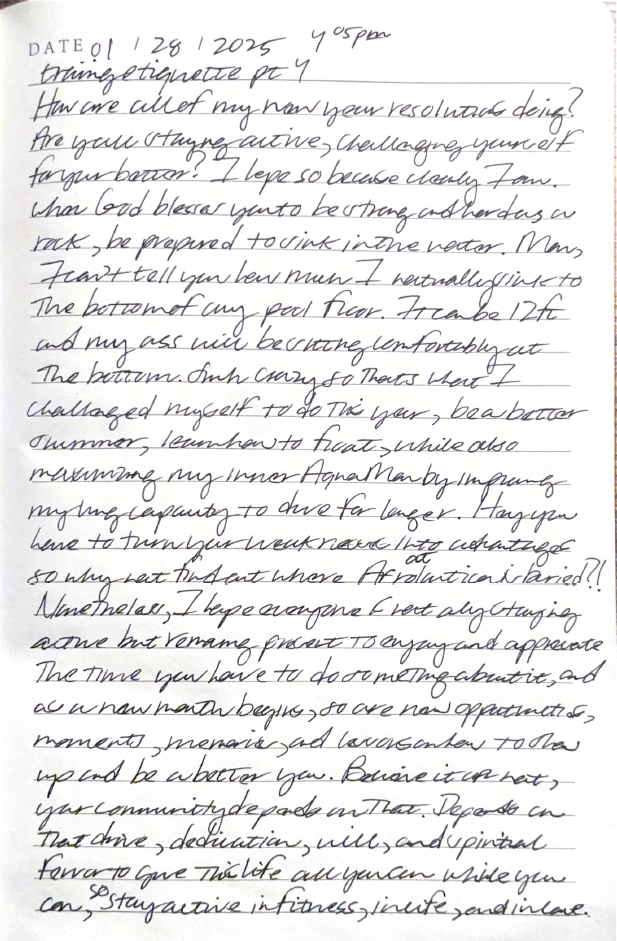 DATE 01 / 28 / 2025 4 05pm
training etiquette pt 4
How are all of my new year resolutions doing?
Are y'all staying active, challenging yourself
for your better? I hope so because clearly I am.
When God blesses you to be strong and hard as a
rock, be prepared to sink in the water. Man,
I can't tell you how much I naturally sink to
The bottom of any pool floor. It can be 12ft
and my ass will be sitting comfortably at
The bottom. Smh crazy so That's what I
challenged myself to do This year, be a better
swimmer, learn how to float, while also
maximizing my inner AquaMan by improving
my lung capacity to dive for longer. Hey you
have to turn your weakness into advantages
so why not find out where Afrolantica is at buried?!
Nonetheless, I hope everyone is not only staying
active but remaining present to enjoy and appreciate
The time you have to do something about it, and
as a new month begins, so are new opportunities,
moments, memories, and lessons on how to show
up and be a better you. Believe it or not,
your community depends on That. Depends on
That drive, dedication, will, and spiritual
fervor to give This life all you can while you
can, so stay active in fitness, in life, and in love.